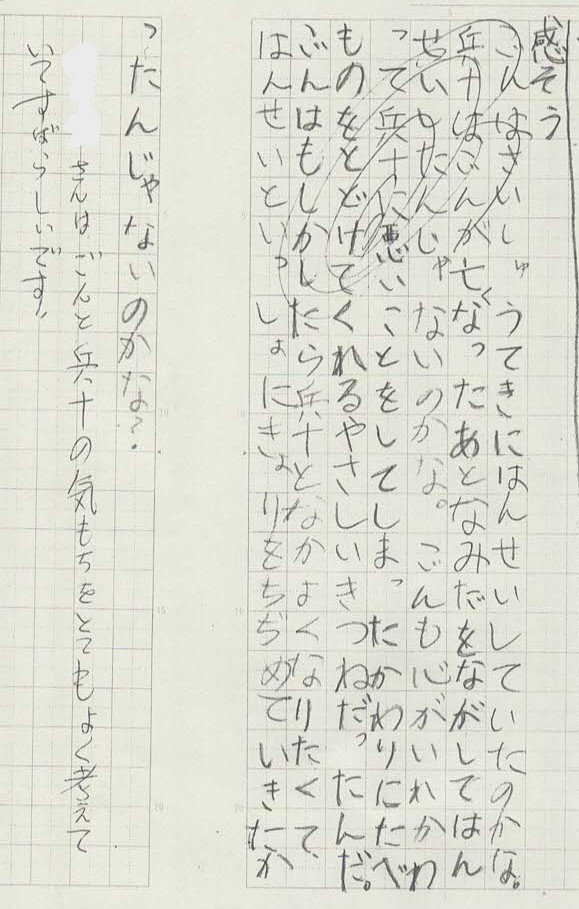 感そう
ごんはさいしゅうてきにはんせいしていたのかな。
兵十はごんが亡くなったあとなみだをながしてはん
せいしたんじゃないのかな。ごんも心がいれかわ
って兵十に悪いことをしてしまったかわりにたべ
ものをとどけてくれるやさしいきつねだったんだ。
ごんはもしかしたら兵十となかよくなりたくて、
はんせいといっしょにきょりをちぢめていきたか
ったんじゃないのかな?.
さんはごんと兵十の気もちをとてもよく考えて
いてすばらしいです!